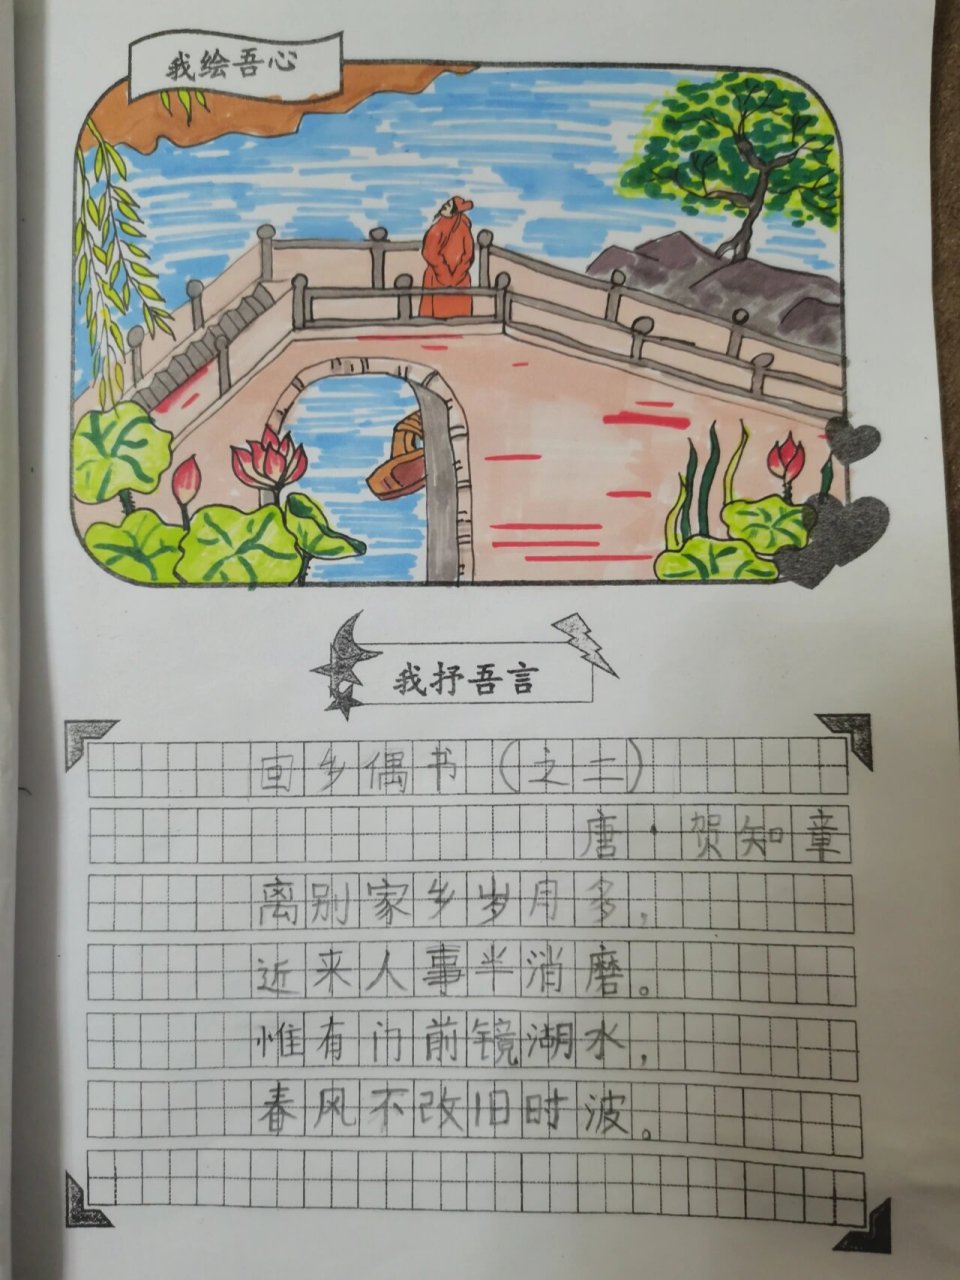 我绘吾心
我抒吾言
回乡偶书（之二）
唐·贺知章
离别家乡岁月多，
近来人事半消磨。
惟有门前镜湖水，
春风不改旧时波。